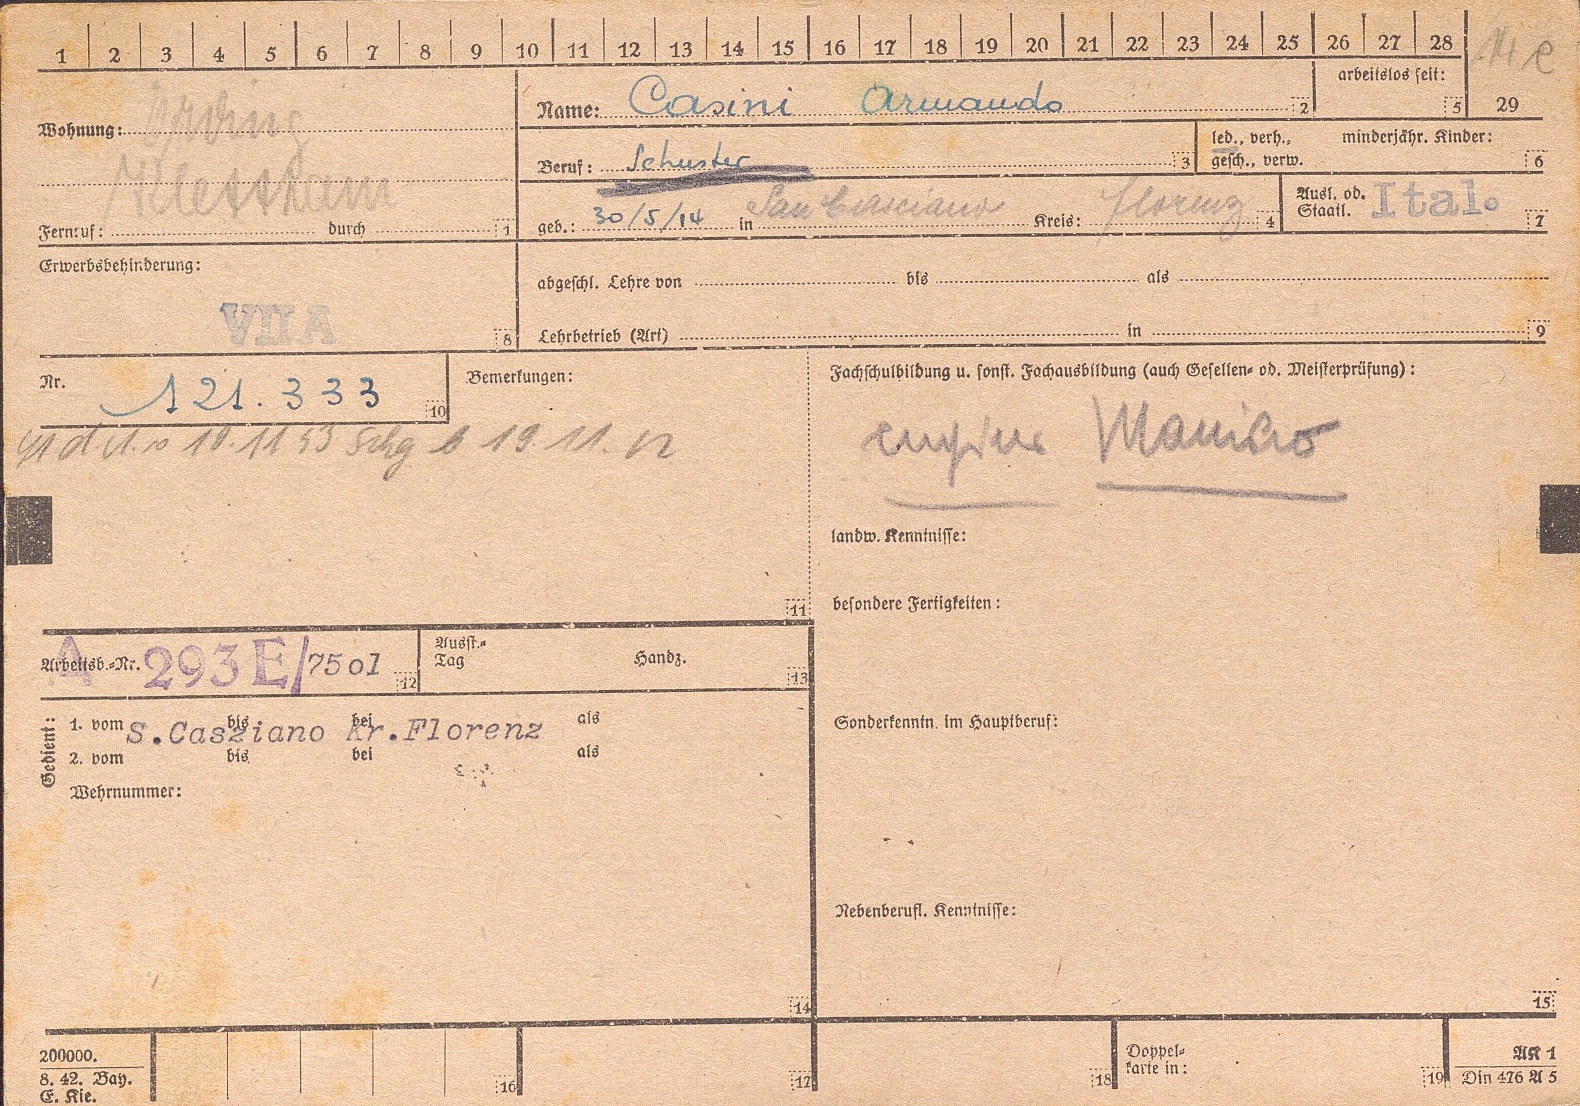 1 2 3 4 5 6 7 8 9 10 11 12 13 14 15 16 17 18 19 20 21 22 23 24 25 26 27 28
14 e
29
Wohnung: Erding
Klettham
Fernruf: durch 1
Name: Casini Armando 2
arbeitslos seit: 5
Beruf: Schuster 3
led., verh., minderjähr. Kinder:
gesch., verw. 6
geb.: 30/5/14 in San Casciano Kreis: Florenz 4
Ausl. od.
Staatl. Ital. 7
Erwerbsbehinderung:
VII A 8
abgeschl. Lehre von bis als
Lehrbetrieb (Art) in 9
Nr. 121.333 10
Bemerkungen:
Fachschulbildung u. sonst. Fachausbildung (auch Gesellen- od. Meisterprüfung):
11
landw. Kenntnisse:
besondere Fertigkeiten:
A
Arbeitsb.-Nr. 293 E/7501 12
Ausst.-
Tag Handz. 13
Sonderkenntn. im Hauptberuf:
Gedient:
1. vom bis bei als
S.Casziano Kr.Florenz
2. vom bis bei als
Wehrnummer:
Nebenberufl. Kenntnisse:
14
15
200000.
8. 42. Bay.
E. Kie.
16
17
18
Doppel-
karte in: 19
AK 1
Din 476 A 5